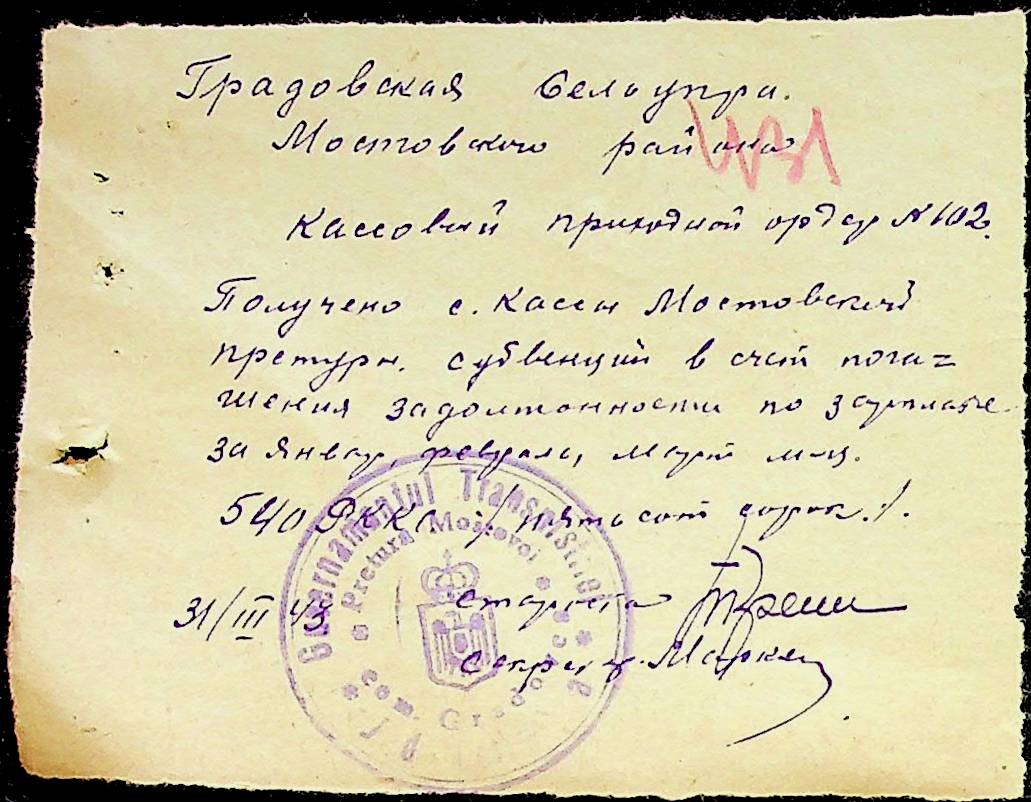 Градовская Селоупри.
Мостовского района
431
Кассовый приходной ордер N 102.
Получено с. Кассы Мостовской
претури. субвенций в счет пога=
шения задолжонности по зарплате
за январ, феврал, март м-ц.
540 РККС /пятьсот сорок./.
31/III 43 староста
Секрет.
Guvernamantul Transnistriei
Pretura Mostovoi
Com. Gradovca